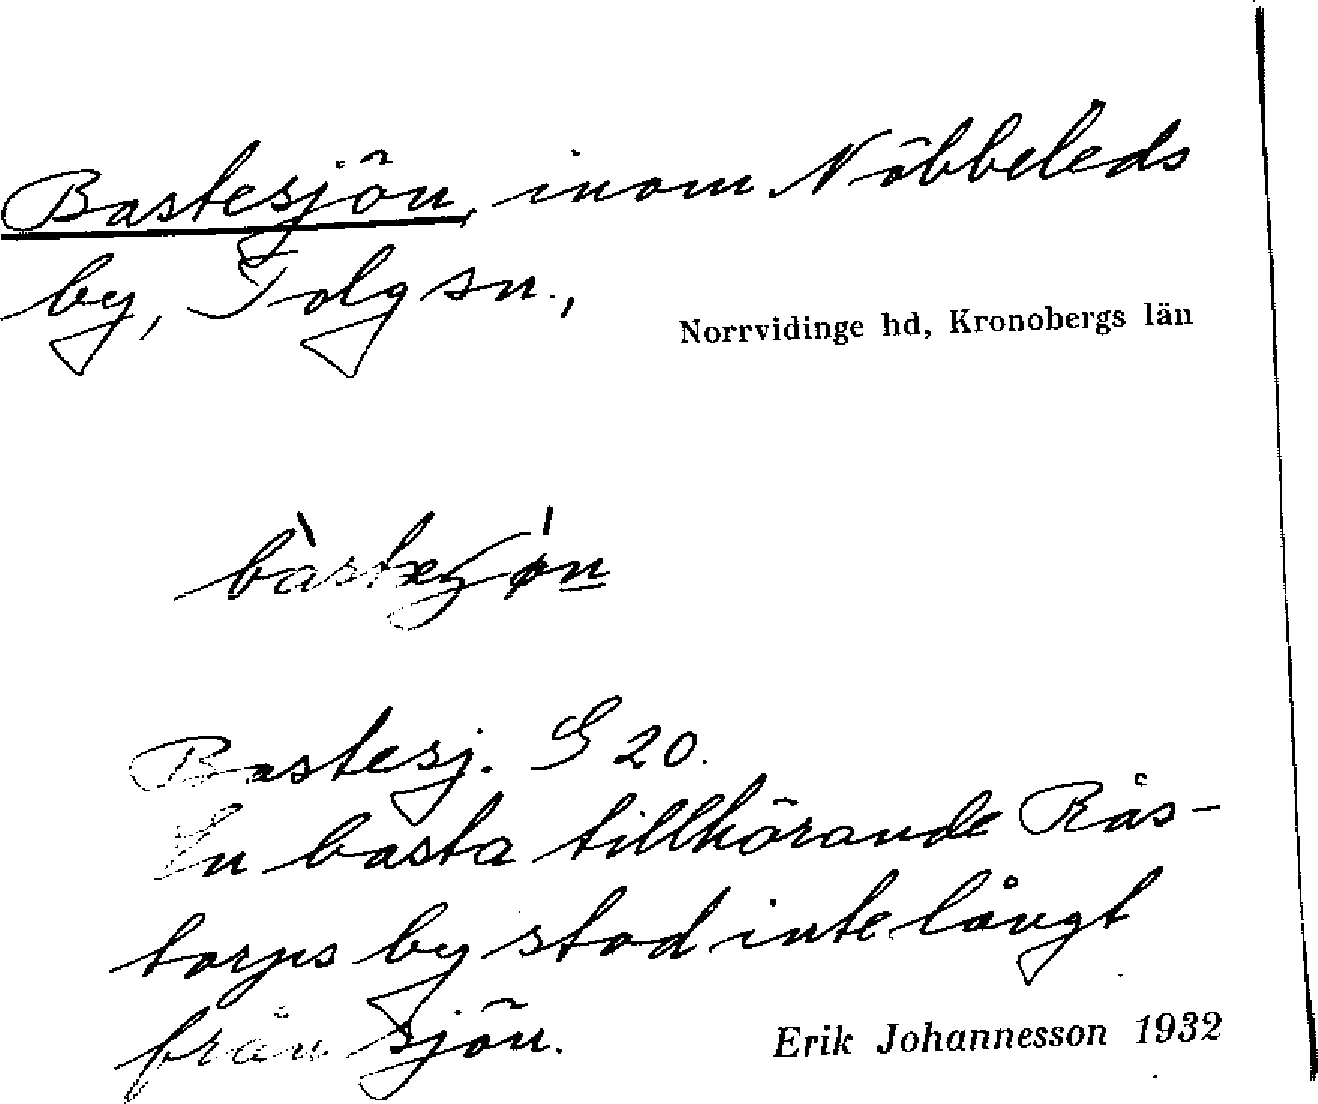 Bastesjön, inom Nöbbeleds
by, Tolg sn.,
Norrvidinge hd, Kronobergs län
Bastesj. G 20.
En basta tillhörande Rås-
torps by stod inte långt
från sjön.
Erik Johannesson 1932